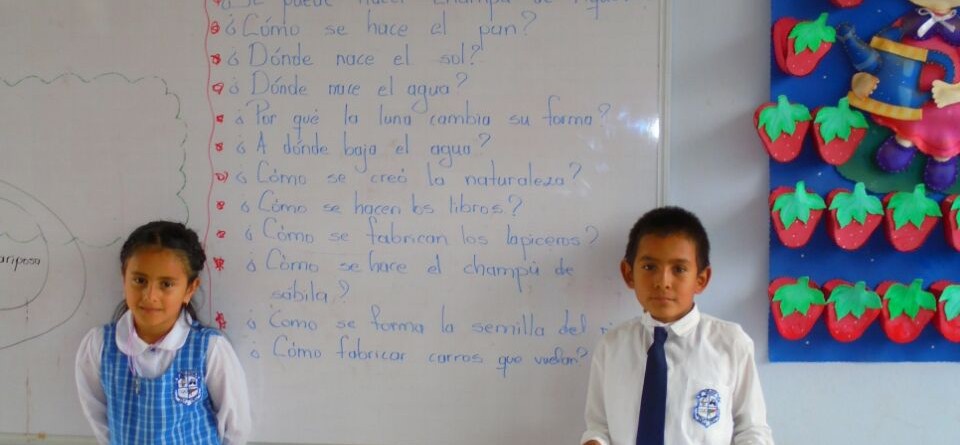 ¿Cómo se hace el pan?
¿Dónde nace el sol?
¿Dónde nace el agua?
¿Por qué la luna cambia su forma?
¿A dónde baja el agua?
¿Cómo se creó la naturaleza?
¿Cómo se hacen los libros?
¿Cómo se fabrican los lapiceros?
¿Cómo se hace el champú de
sábila?
¿Como se forma la semilla del
¿Cómo fabricar carros que vuelan?
ariposa